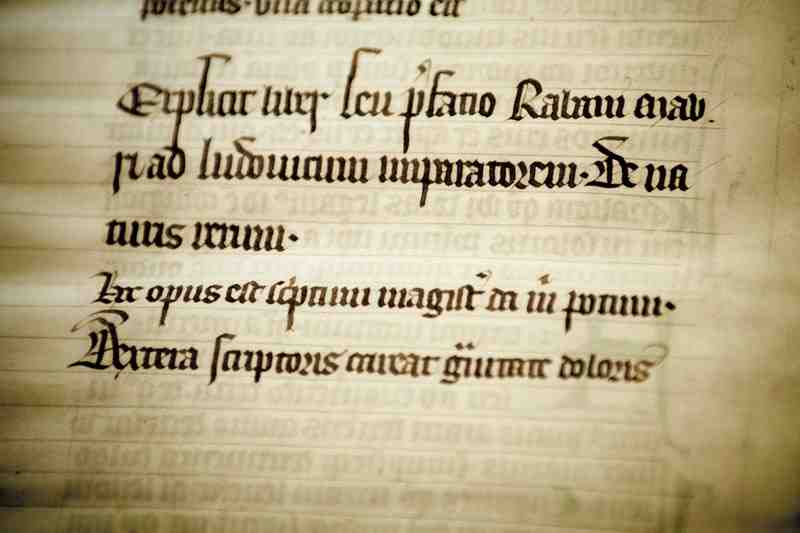 est
Explicit liber seu p̄fatio Rabani mau
ri ad ludouicum imparatorem· De na
turis rerum·
Hoc opus est sc̓ptum magist̄ da m̄ potum·
Dextera scriptoris careat gͣuitate doloris